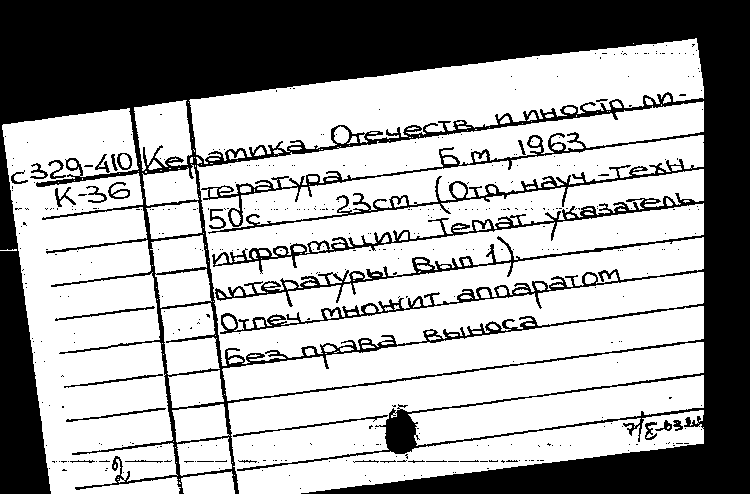 с329-410 Керамика. Отечеств. и иностр. ли-
К-36 тература. Б.м., 1963
50с. 23см. (Отд. науч.-техн.
информации. Темат. указатель
литературы. Вып 1).
Отпеч. множит. аппаратом
Без права выноса
2